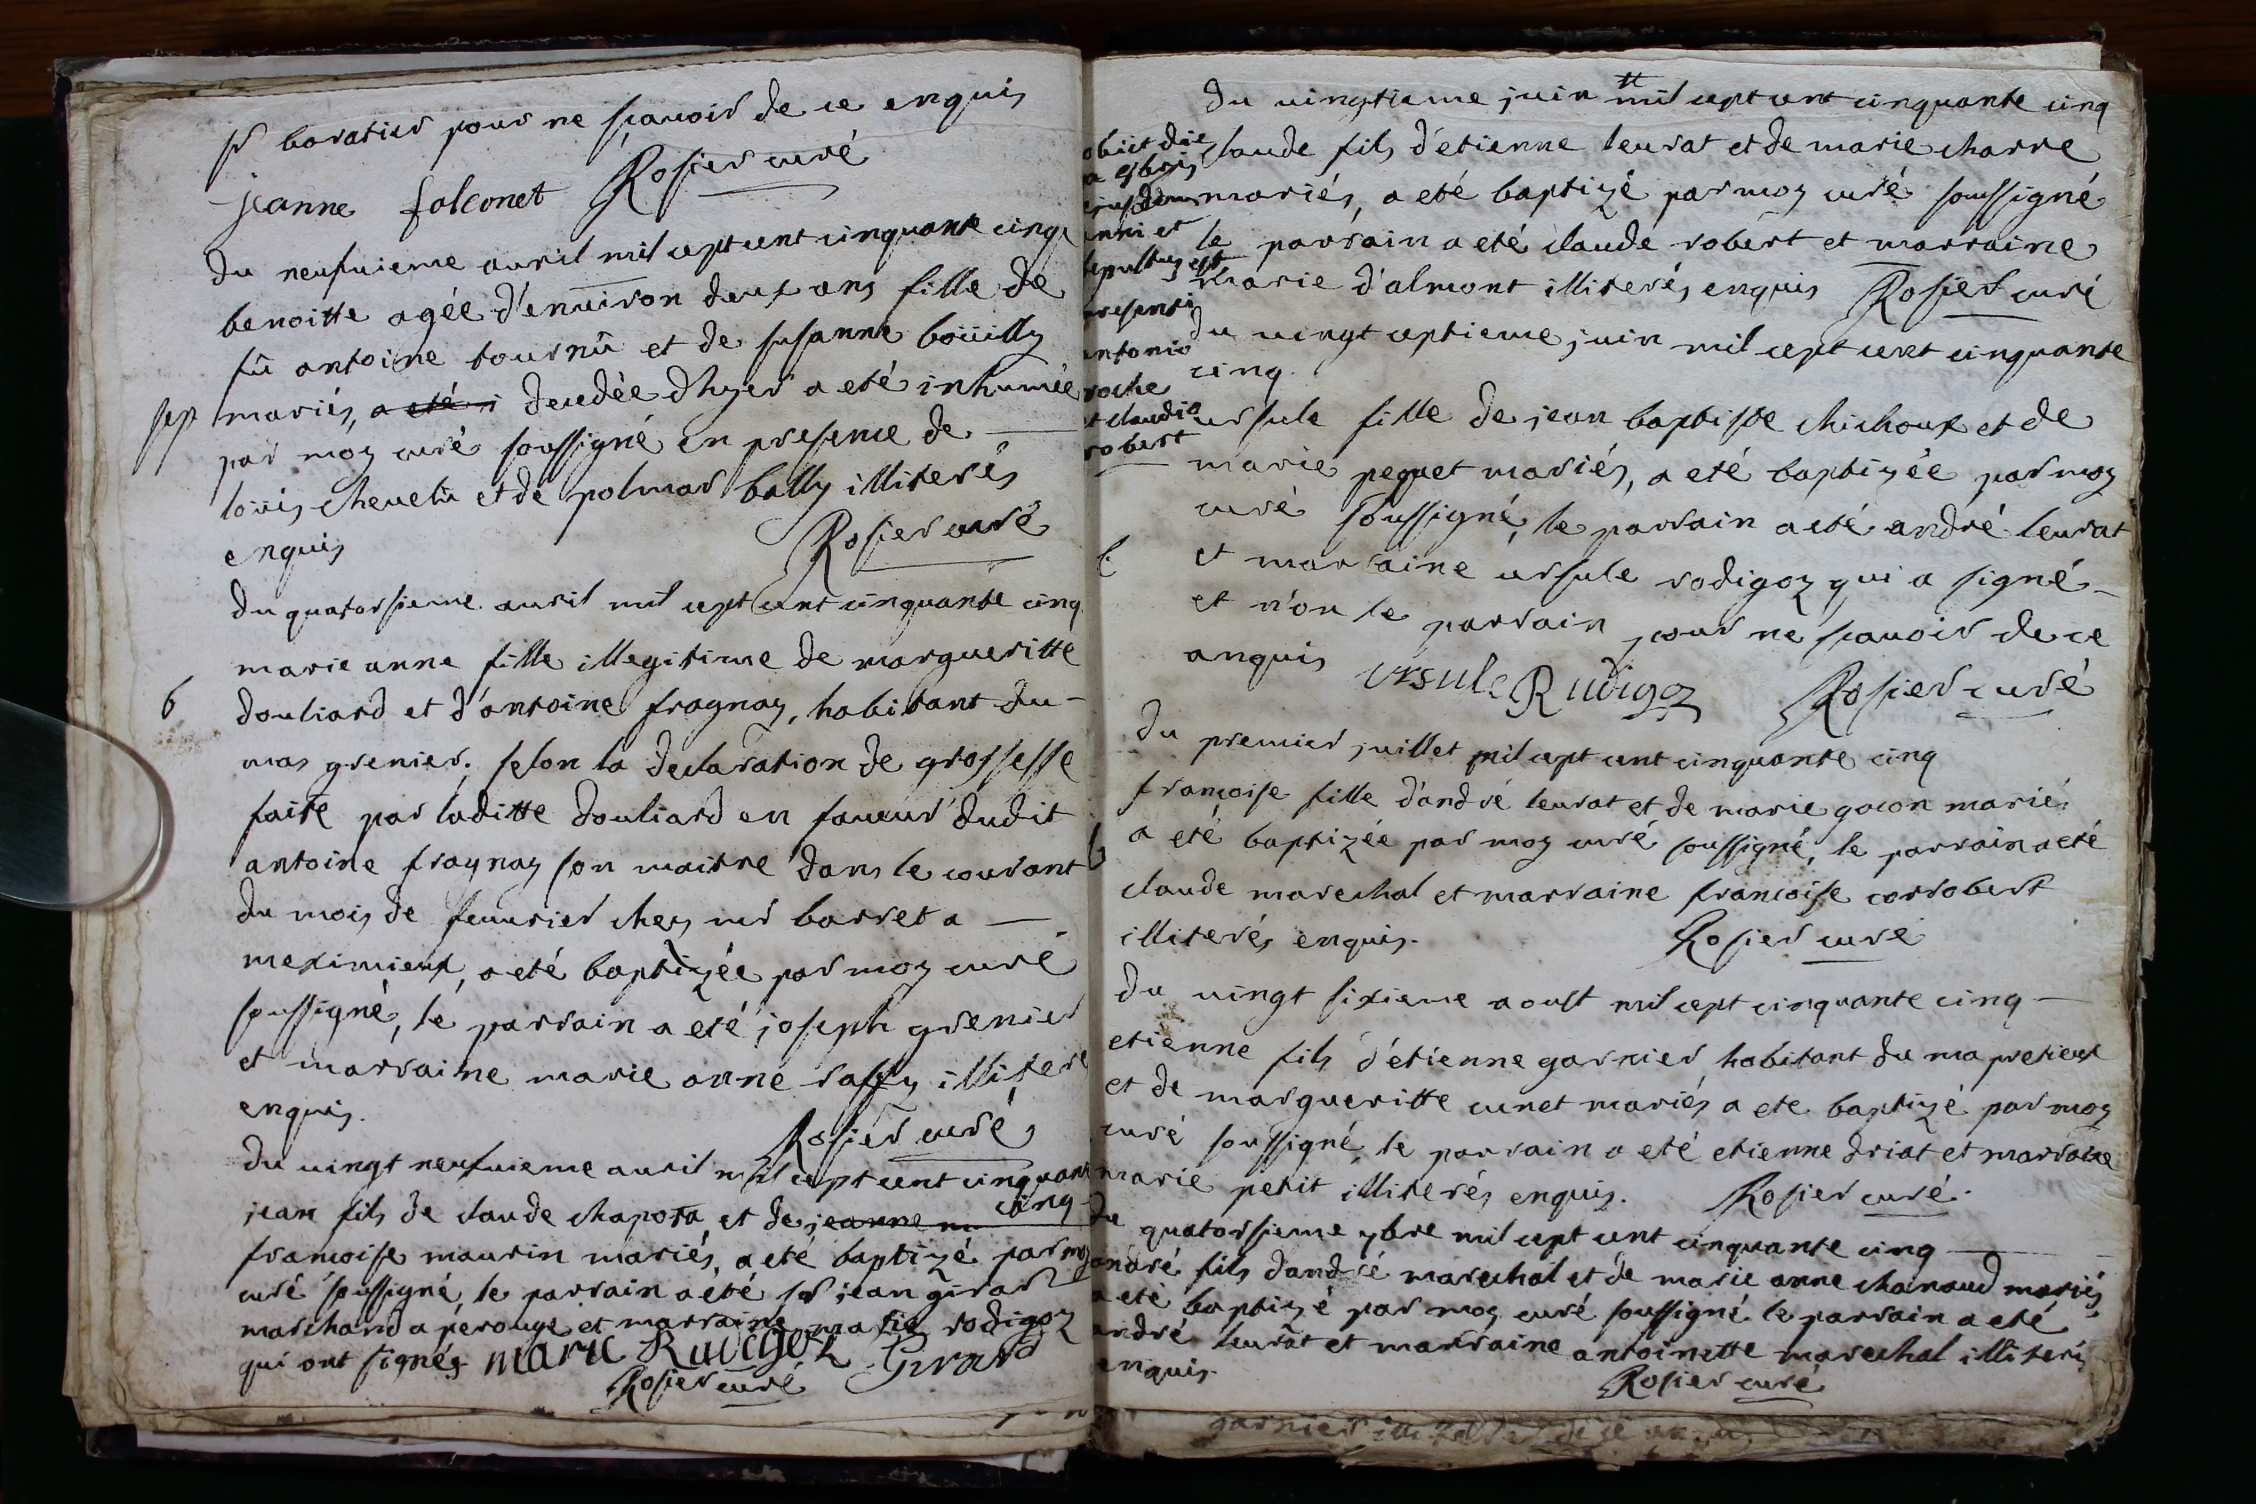 sr baratier pour ne sçavoir de ce enquis
jeanne falconet Rosier curé
du neufuieme auril mil cept cent cinquante cinq
benoitte agée d'enuiron deux ans fille de
fû antoine tournû et de susanne boüilly
sep mariés, a eté i decedée d'hyer a eté inhumée
par moy curé soussigné en presence de
loüis cheuelu et de polmar bally illiterés
enquis Rosier curé
du quatorsieme auril mil cept cent cinquante cinq
marie anne fille illegitime de margueritte
b douliard et d'antoine fragnay, habitant du
mas grenier. selon la declaration de grossesse
faite par laditte douliard en faueur dudit
antoine fragnay son maitre dans le courant
du mois de feuurier chez mr barret a
meximieux, a eté baptizée par moy curé
soussigné, le parrain a eté joseph grenier
et marraine marie anne raffy illitere
enquis.
Rosier curé
du uingt neufuieme auril mil cept cent cinquante
cinq
jean fils de claude chapota et de jeanne m
francoise maurin mariés, a eté baptizé par moy
curé soussigné, le parrain a eté sr jean girard
marchand a perouge et marraine marie rodigoz
qui ont signés marie Rudigoz Girard
Rosier curé
du uingtieme juin mil cept cent cinquante cinq
claude fils d'etienne leurat et de marie charre
mariés, a eté baptizé par moy curé soussigné
le parrain a eté claude robert et marraine
marie d'almont illiterés enquis Rosier curé
obiit die
a 9bris
ejusdem
anni et
sepultus est
presenti
antonio
roche
et claudio
robert
du uingt ceptieme juin mil cept cent cinquante
cinq.
ursule fille de jean baptiste chichoux et de
marie pequet mariés, a eté baptizée par moy
curé soussigné, le parrain a eté andré leurat
b et marraine ursule rodigoz qui a signé
et n'on le parrain pour ne sçauoir de ce
anquis ursule Rudigoz Rosier curé
du premier juillet mil cept cent cinquante cinq
francoise fille d'andré leurat et de marie gacon mariés
b a eté baptizée par moy curé soussigné, le parrain a eté
claude marechal et marraine francoise corrobert
illiterés enquis. Rosier curé
du uingt sixieme aoust mil cept cinquante cinq
etienne fils d'etienne garnier habitant du ma pretieux
et de margueritte cunet mariés a ete baptizé par moy
curé soussigné, le parrain a eté etienne driat et marraine
marie petit illiterés enquis. Rosier curé.
du quatorsieme 7bre mil cept cent cinquante cinq
andré fils d'andré marechal et de marie anne chanaud mariés
a eté baptizé par moy curé soussigné le parrain a eté
andré leurat et marraine antoinette marechal illiterés
enquis.
Rosier curé
garnier